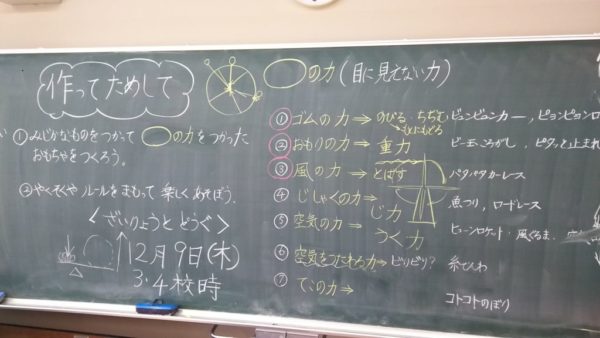 作ってためして
◯の力(目に見えない力)
①みじかなものをつかって ◯の力をつかった
おもちゃをつくろう。
②やくそくや ルールをまもって 楽しくあそぼう。
<ざいりょうと どうぐ>
12月9日(木)
3.4校時
①ゴムの力→のびる・ちぢむ ビョンビョンカー,ピョンピョンロ
もとにもどる
②おもりの力→重力 ビー玉ころがし,ピタッと止まれ
③風の力→とばす パタパタカーレス
④じしゃくの力→じ力 魚つり,ロードレース
⑤空気の力→つく力 ロケット・風ぐるま
⑥空気をつたわる力→ビリビリ? 糸でんわ
⑦ての力→ コトコトのぼり